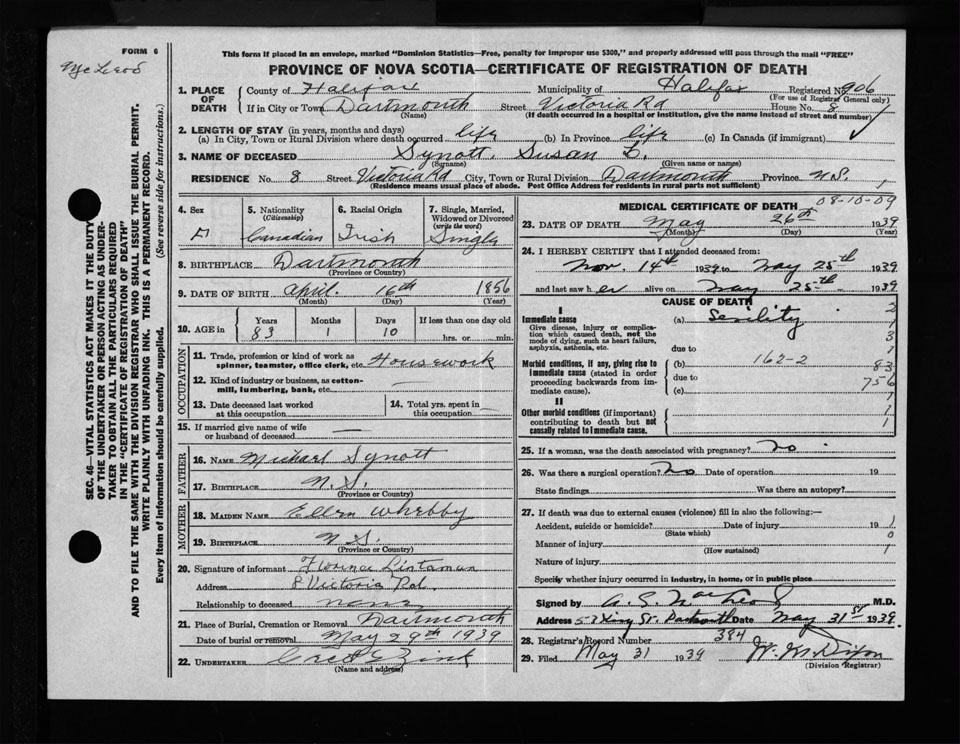 FORM 6
McLeod
This form if placed in an envelope, marked "Dominion Statistics—Free, penalty for improper use $300," and properly addressed will pass through the mail "FREE"
PROVINCE OF NOVA SCOTIA—CERTIFICATE OF REGISTRATION OF DEATH
1. PLACE OF DEATH County of Halifax Municipality of Halifax Registered No. 906
(For use of Registrar General only)
If in City or Town Dartmouth Street Victoria Rd House No. 8
(Name) (If death occurred in a hospital or institution, give the name instead of street and number)
2. LENGTH OF STAY (in years, months and days)
(a) In City, Town or Rural Division where death occurred life (b) In Province life (c) In Canada (if immigrant)
3. NAME OF DECEASED Synott. Susan
(Surname) (Given name or names)
RESIDENCE No. 8 Street Victoria Rd City, Town or Rural Division Dartmouth Province N.S.
(Residence means usual place of abode. Post Office Address for residents in rural parts not sufficient)
SEC. 46—VITAL STATISTICS ACT MAKES IT THE DUTY
OF THE UNDERTAKER OR PERSON ACTING AS UNDER-
TAKER TO OBTAIN ALL THE PARTICULARS REQUIRED
IN THE "CERTIFICATE OF REGISTRATION OF DEATH"
AND TO FILE THE SAME WITH THE DIVISION REGISTRAR WHO SHALL ISSUE THE BURIAL PERMIT.
WRITE PLAINLY WITH UNFADING INK. THIS IS A PERMANENT RECORD.
Every item of information should be carefully supplied. (See reverse side for instructions.)
4. Sex
F
5. Nationality
(Citizenship)
Canadian
6. Racial Origin
Irish
7. Single, Married,
Widowed or Divorced
(write the word)
Single
8. BIRTHPLACE Dartmouth
(Province or Country)
9. DATE OF BIRTH April 16th 1856
(Month) (Day) (Year)
10. AGE in Years Months Days If less than one day old
83 1 10 hrs. or min.
OCCUPATION
11. Trade, profession or kind of work as
spinner, teamster, office clerk, etc. Housework
12. Kind of industry or business, as cotton-
mill, lumbering, bank, etc. —
13. Date deceased last worked
at this occupation
14. Total yrs. spent in
this occupation —
15. If married give name of wife
or husband of deceased —
FATHER
16. NAME Michael Synott
17. BIRTHPLACE N.S.
(Province or Country)
MOTHER
18. MAIDEN NAME Ellen Whebby
19. BIRTHPLACE N.S.
(Province or Country)
20. Signature of informant Florence Lintaman
Address 8 Victoria Rd.
Relationship to deceased none
21. Place of Burial, Cremation or Removal Dartmouth
Date of burial or removal May 29th 1939
22. UNDERTAKER Zink
(Name and address)
08-10-09
MEDICAL CERTIFICATE OF DEATH
23. DATE OF DEATH May 26th 1939
(Month) (Day) (Year)
24. I HEREBY CERTIFY that I attended deceased from:
Nov. 14th 1939 to May 25th 1939
and last saw her alive on May 25th 1939
CAUSE OF DEATH
I
Immediate cause (a) Senility
Give disease, injury or complica-
tion which caused death, not the
mode of dying, such as heart failure,
asphyxia, asthenia, etc.
due to
Morbid conditions, if any, giving rise to
immediate cause (stated in order
proceeding backwards from im-
mediate cause).
(b) 162-2
due to
(c)
2
1
3
1
83
756
II
Other morbid conditions (if important)
contributing to death but not
causally related to immediate cause.
1
1
25. If a woman, was the death associated with pregnancy? No
26. Was there a surgical operation? No Date of operation 19
State findings Was there an autopsy?
27. If death was due to external causes (violence) fill in also the following:—
Accident, suicide or homicide? Date of injury 19
(State which)
Manner of injury
(How sustained)
Nature of injury
Specify whether injury occurred in industry, in home, or in public place
1
0
1
Signed by A. S. MacLeod M.D.
Address 57 King St. Dartmouth Date May 31st 1939.
28. Registrar's Record Number 384
29. Filed May 31 1939 W. M. Dixon
(Division Registrar)